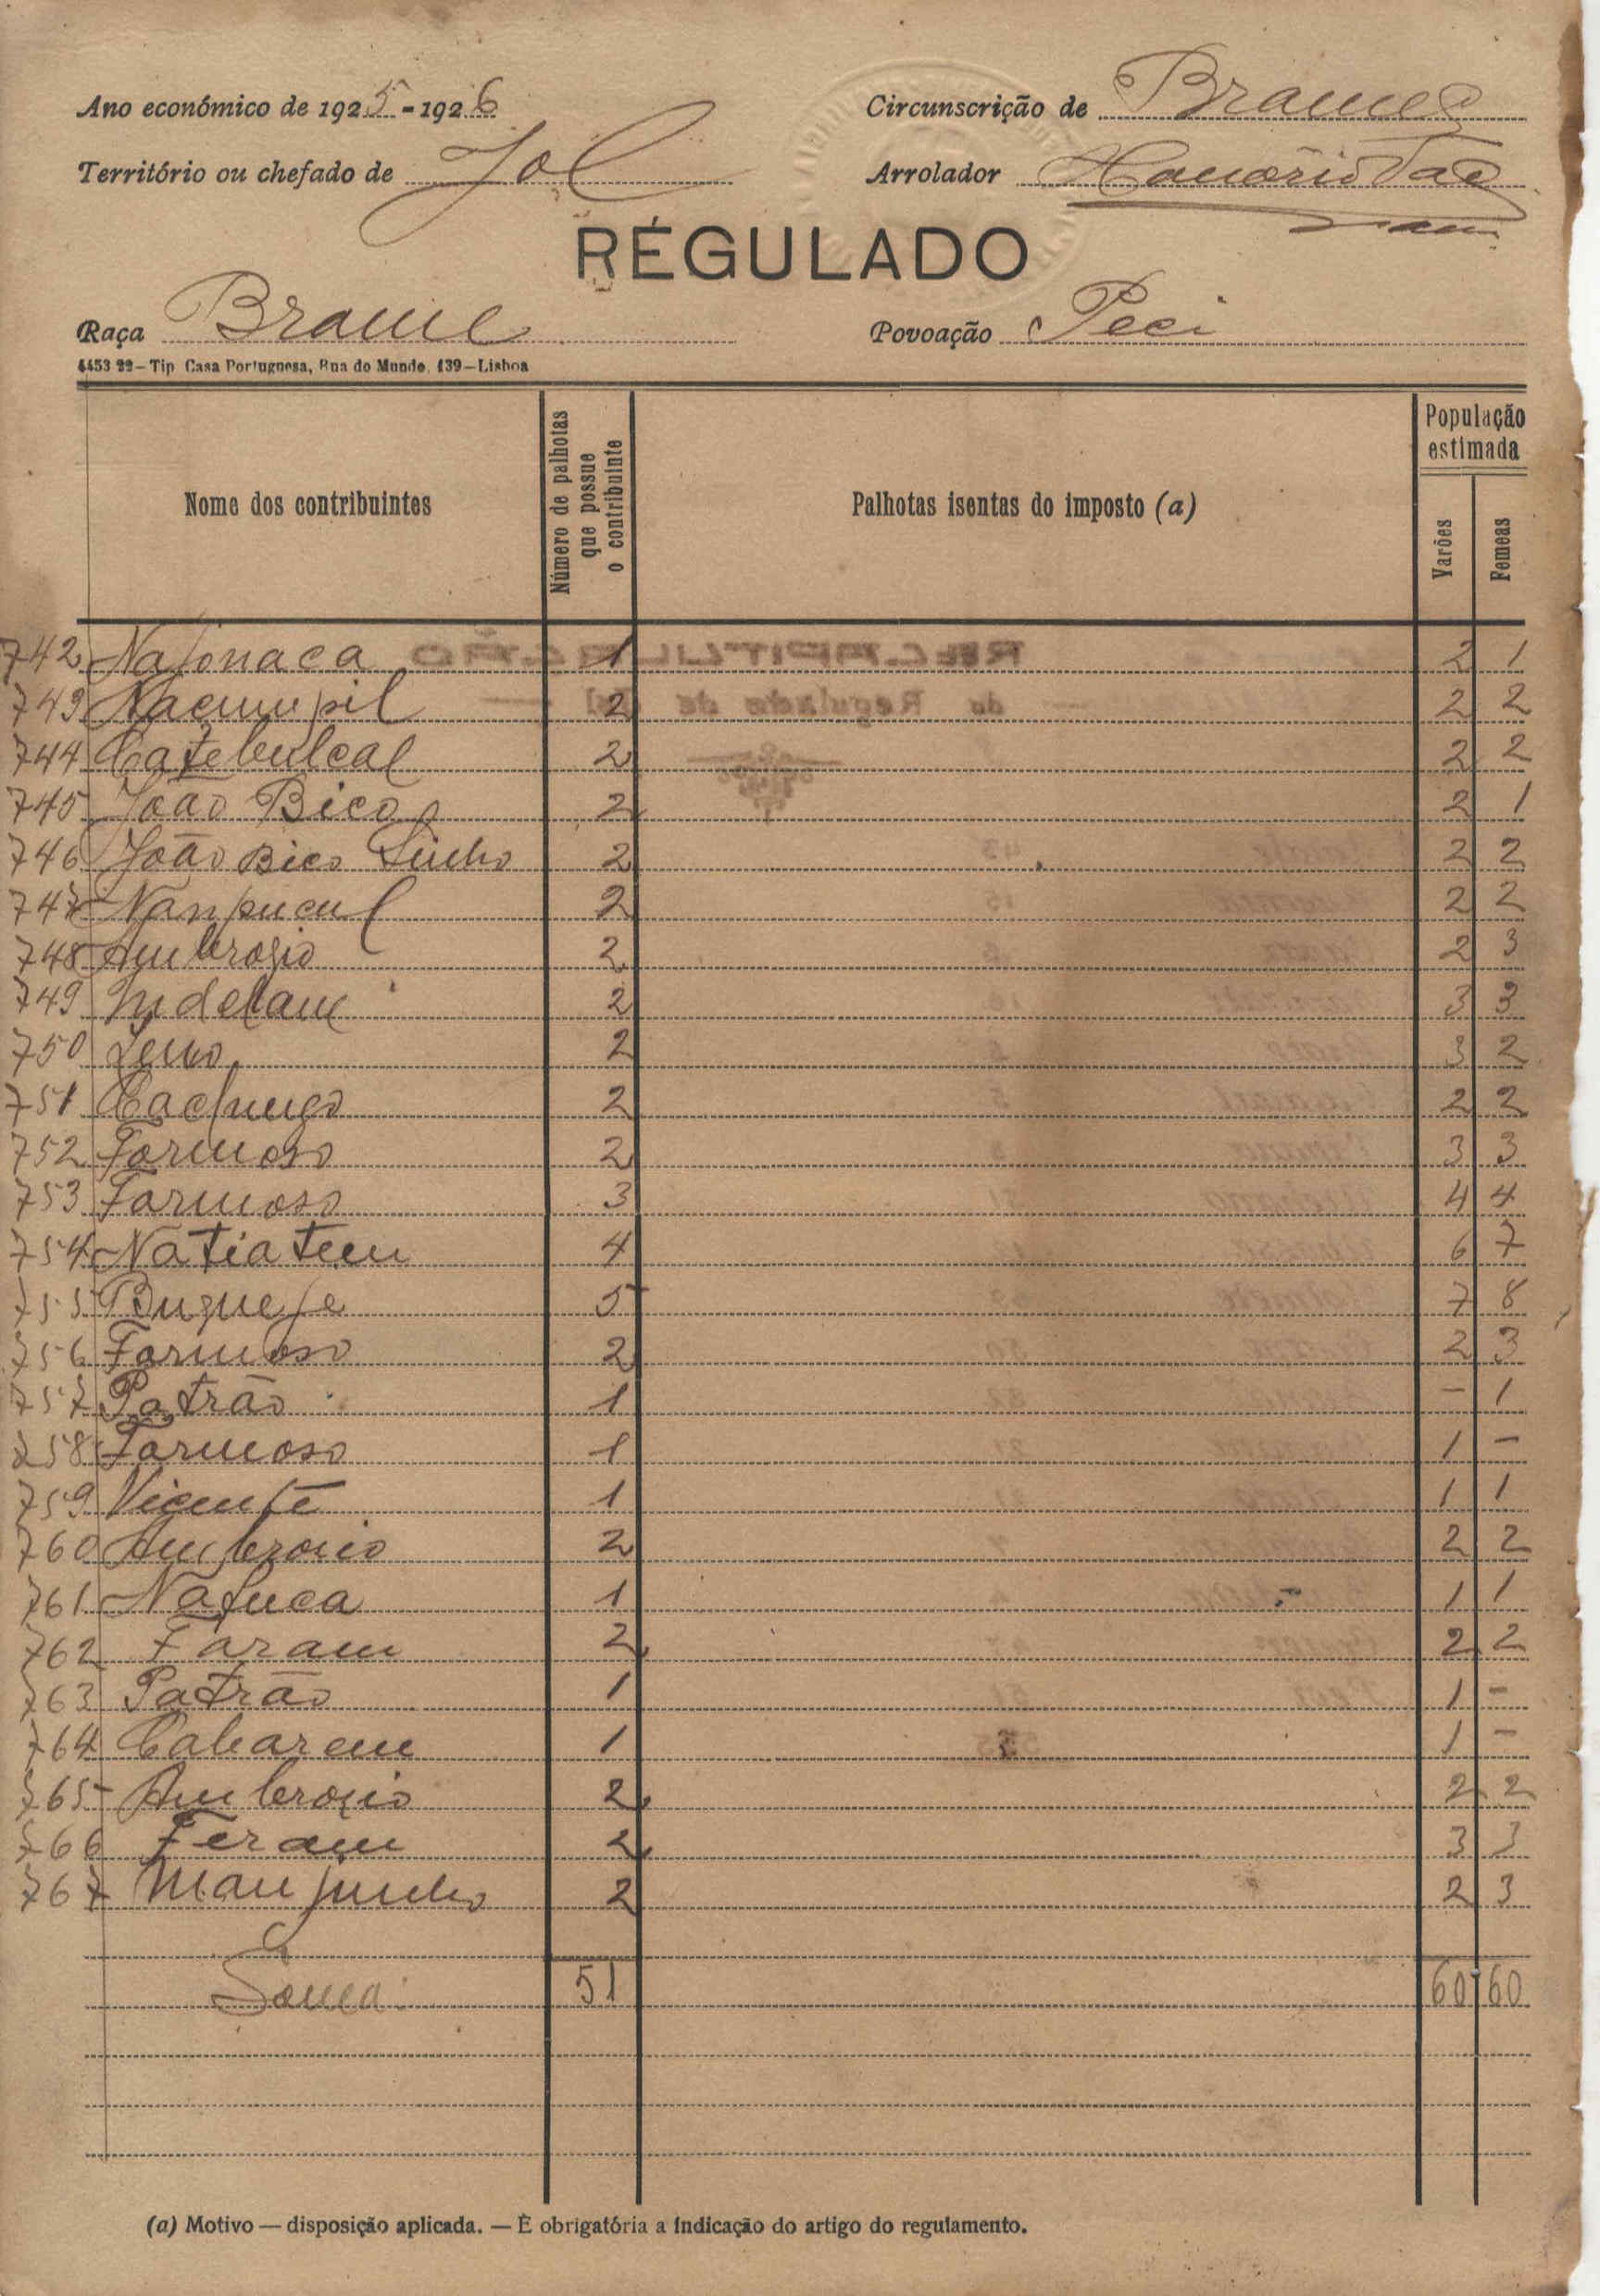 Ano económico de 1925-1926
Circunscrição de Brames
Território ou chefado de Jol
Arrolador
RÉGULADO
Raça Brame
Povoação Peci
4453 22—Tip Casa Portuguesa, Rua do Mundo, 139—Lisboa
Nome dos contribuintes
Número de palhotas que possue o contribuinte
Palhotas isentas do imposto (a)
População estimada
Varões
Femeas
742 Nafonaca 1 2 1
743 Nacumpil 2 2 2
744 Catebulcal 2 2 2
745 João Bico 2 2 1
746 João Bico 2 2 2
747 Nanpucul 2 2 2
748 Ambrosio 2 2 3
749 Indelame 2 3 3
750 2 3 2
751 Cachungo 2 2 2
752 Formoso 2 3 3
753 Formoso 3 4 4
754 Natiatem 4 6 7
755 Buquefe 5 7 8
756 Formoso 2 2 3
757 Patrão 1 - 1
758 Formoso 1 1 -
759 Vicente 1 1 1
760 Ambrosio 2 2 2
761 Nafuca 1 1 1
762 Faram 2 2 2
763 Patrão 1 1 -
764 Cabarem 1 1 -
765 Ambrosio 2 2 2
766 Feram 2 3 3
767 Manjincho 2 2 3
Soma 51 60 60
(a) Motivo — disposição aplicada. — É obrigatória a indicação do artigo do regulamento.